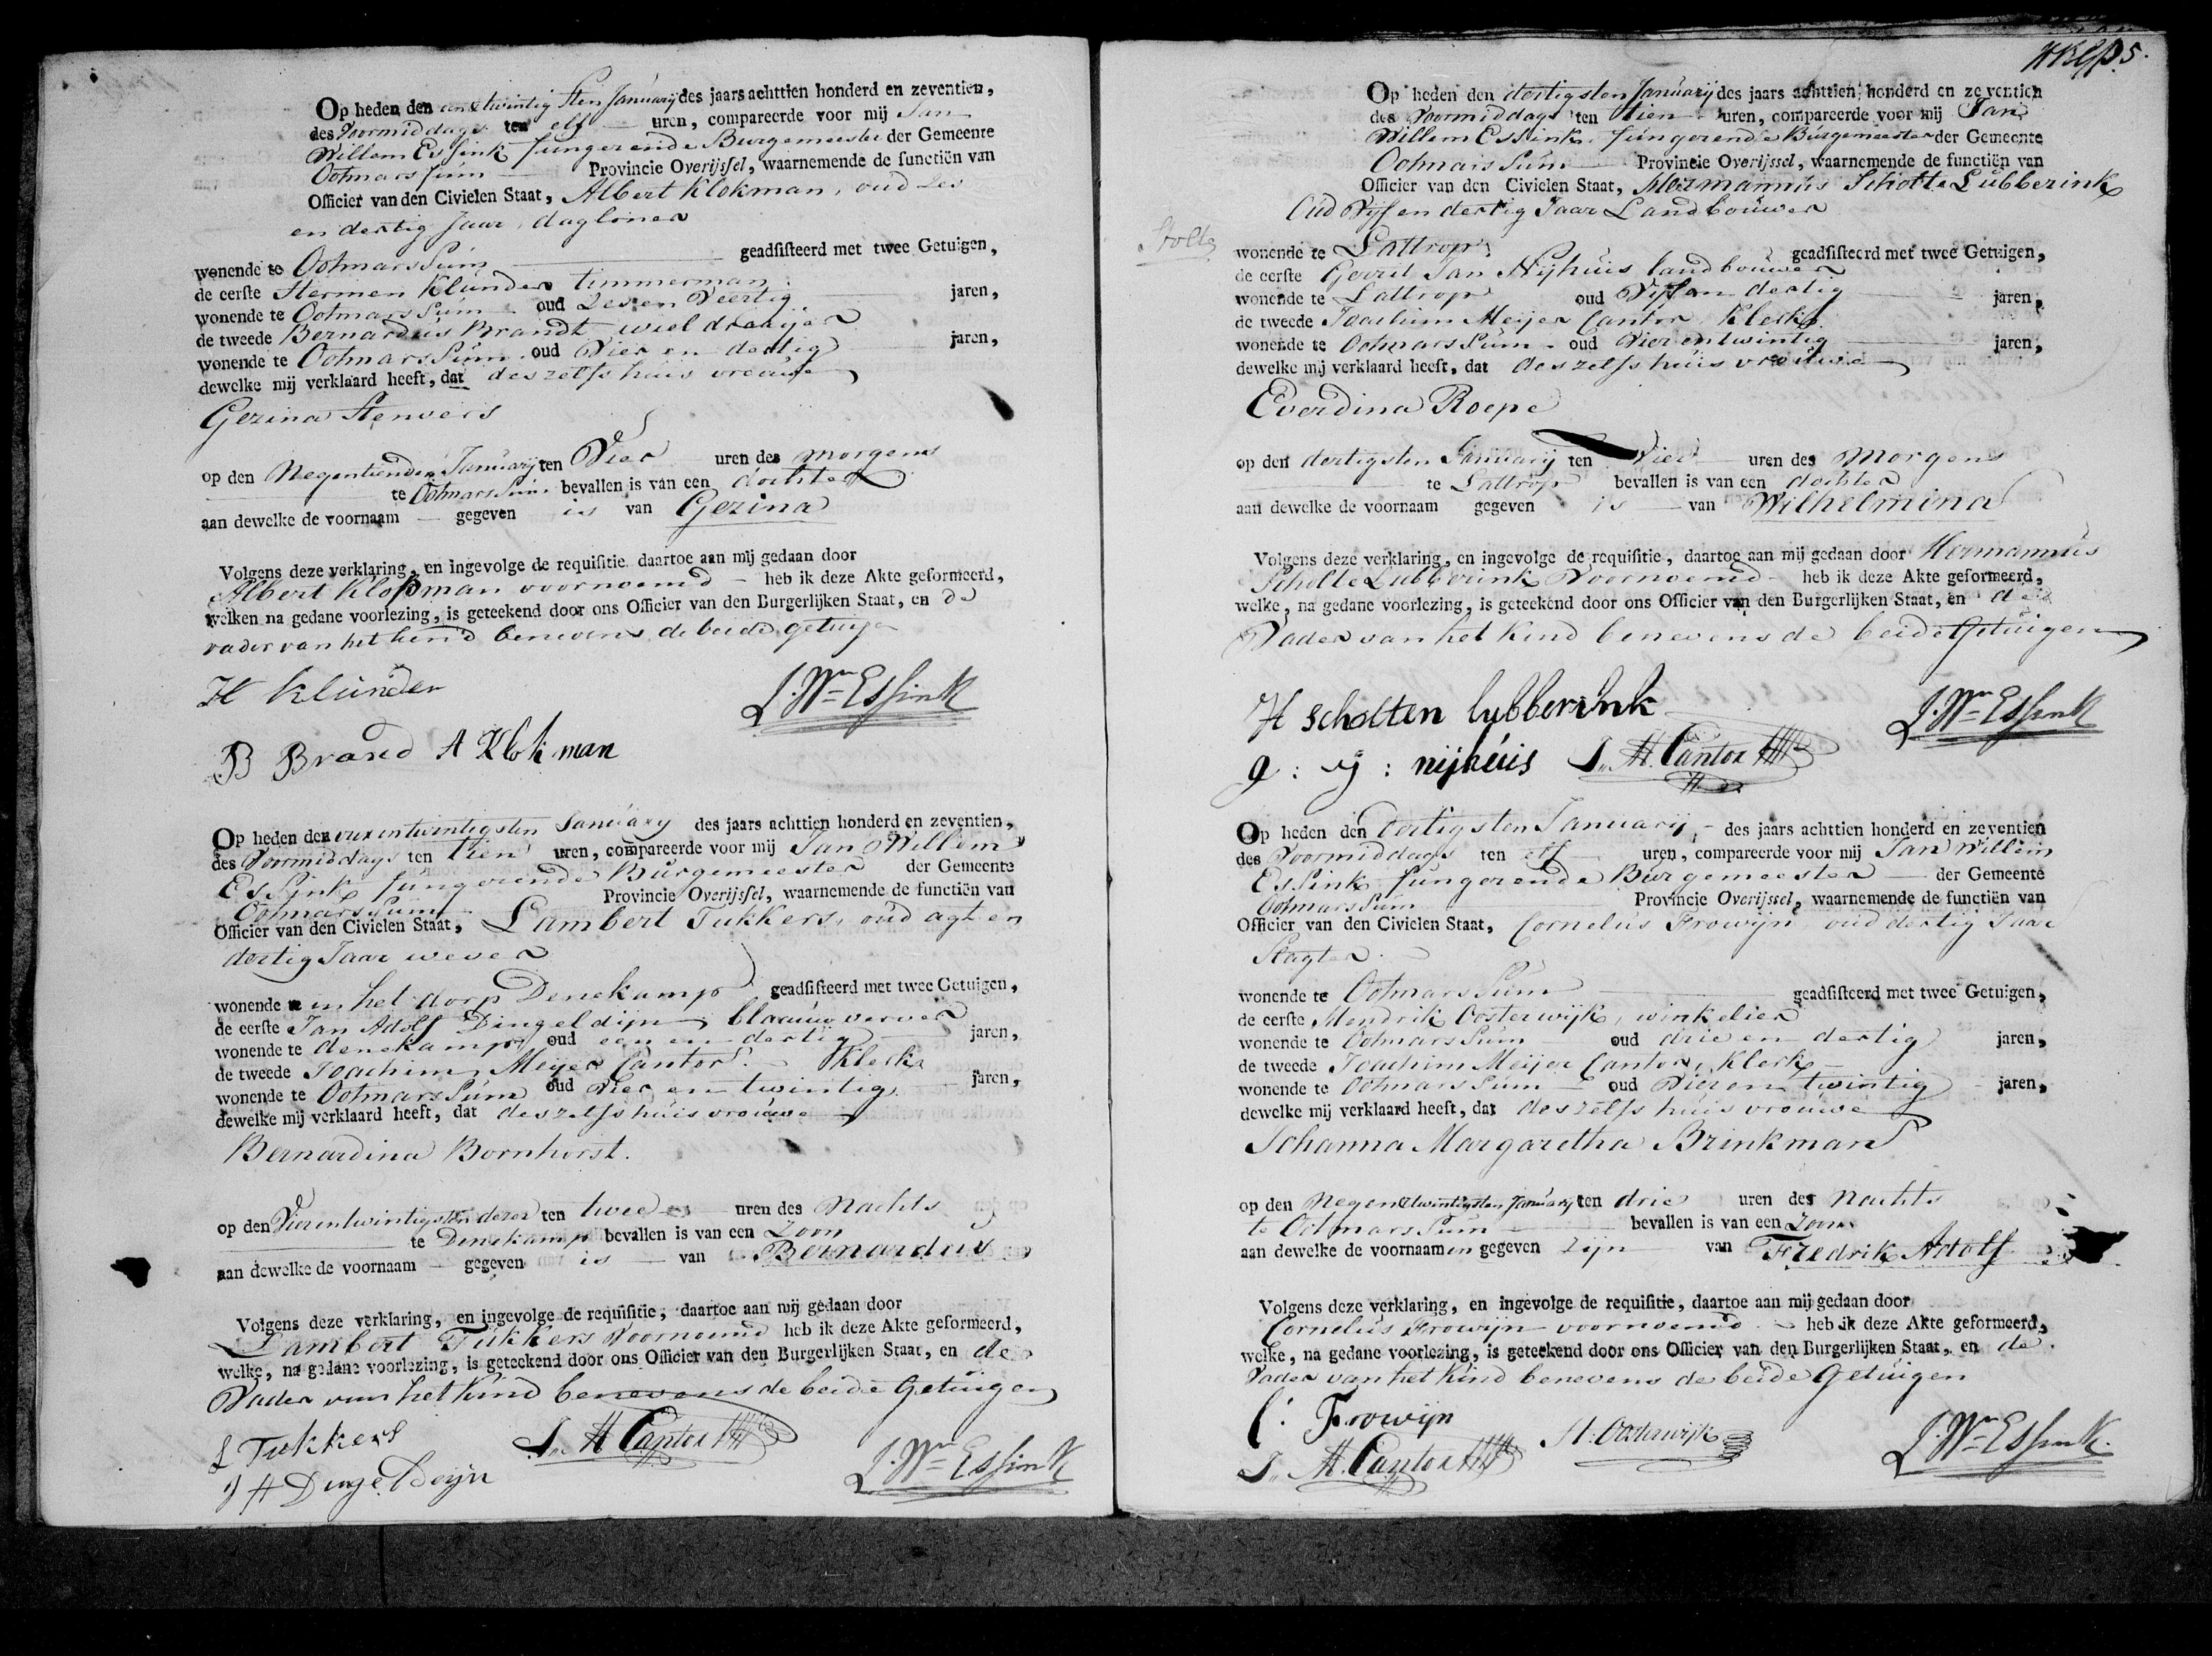 Op heden den een & twintig sten Januarij des jaars achttien honderd en zeventien,
des Voormiddags ten elf uren, compareerde voor mij Jan
Willem Essink fungerende Burgemeester der Gemeente
Ootmarssum Provincie Overijssel, waarnemende de functiën van
Officier van den Civielen Staat, Albert Klokman, oud zes
en dertig Jaar, dagloner
wonende te Ootmarssum geadsisteerd met twee Getuigen,
de eerste Hermen Klunder timmerman
wonende te Ootmarssum oud zes en Veertig jaren,
de tweede Bernardus Brandt wieldraaijer
wonende te Ootmarssum oud Vier en dertig jaren,
dewelke mij verklaard heeft, dat deszelfs huis vrouwe
Gezina Stenvers
op den Negentienden Januarij ten Vier uren des morgens
te Ootmarssum bevallen is van een dochter
aan dewelke de voornaam gegeven is van Gezina
Volgens deze verklaring, en ingevolge de requisitie daartoe aan mij gedaan door
Albert Klokman voornoemd heb ik deze Akte geformeerd,
welken na gedane voorlezing, is geteekend door ons Officier van den Burgerlijken Staat, en de
vader van het kind benevens de beide getuigen
H Klunder
J. Wm Essink
B Brand A Klokman
Op heden den vierentwintigsten January des jaars achttien honderd en zeventien,
des Voormiddags ten tien uren, compareerde voor mij Jan Willem
Essink fungerende Burgemeester der Gemeente
Ootmarssum Provincie Overijssel, waarnemende de functiën van
Officier van den Civielen Staat, Lambert Tukkers, oud agt en
dertig Jaar wever
wonende in het dorp Denekamp geadsisteerd met twee Getuigen,
de eerste Jan Adolf Dingeldijn blaauwverver
wonende te denekamp oud een en dertig jaren,
de tweede Joachim Meijer Cantor Klerk
wonende te Ootmarssum oud Vier en twintig jaren,
dewelke mij verklaard heeft, dat deszelfs huis vrouwe
Bernardina Bornhorst.
op den Vierentwintigsten dezer ten twee uren des Nachts
te Denekamp bevallen is van een Zoon
aan dewelke de voornaam gegeven is van Bernardus
Volgens deze verklaring, en ingevolge de requisitie, daartoe aan mij gedaan door
Lambert Tukkers Voornoemd heb ik deze Akte geformeerd,
welke, na gedane voorlezing, is geteekend door ons Officier van den Burgerlijken Staat, en de
Vader van het Kind benevens de beide Getuigen
L Tukkers J. M. Cantor
J A Dingeldeijn J. Wm Essink
5.
Op heden den dertigsten Januarij des jaars achttien honderd en zeventien
des Voormiddags ten tien uren, compareerde voor mij Jan
Willem Essink fungerende Burgemeester der Gemeente
Ootmarssum Provincie Overijssel, waarnemende de functiën van
Officier van den Civielen Staat, Hermannus Scholte Lubberink
Oud Vijf en dertig Jaar Landbouwer
wonende te Lattrop geadsisteerd met twee Getuigen,
de eerste Gerrit Jan Nijhuis landbouwer
wonende te Lattrop oud Vijf en dertig jaren,
de tweede Joachim Meijer Cantor Klerk
wonende te Ootmarssum oud Vier en twintig jaren,
dewelke mij verklaard heeft, dat deszelfs huis vrouwe
Everdina Roepe
op den dertigsten Januarij ten Vier uren des Morgens
te Lattrop bevallen is van een dochter
aan dewelke de voornaam gegeven is van Wilhelmina
Volgens deze verklaring, en ingevolge de requisitie, daartoe aan mij gedaan door Hermannus
Scholte Lubberink Voornoemd heb ik deze Akte geformeerd,
welke, na gedane voorlezing, is geteekend door ons Officier van den Burgerlijken Staat, en de
Vader van het Kind benevens de beide Getuigen
H scholten lubberink
J. Wm Essink
g : J : nijhuis J. M. Cantor
Op heden den dertigsten Januarij des jaars achttien honderd en zeventien
des Voormiddags ten elf uren, compareerde voor mij Jan Willem
Essink fungerende Burgemeester der Gemeente
Ootmarssum Provincie Overijssel, waarnemende de functiën van
Officier van den Civielen Staat, Cornelus Frowijn oud dertig Jaar
Slagter
wonende te Ootmarssum geadsisteerd met twee Getuigen,
de eerste Hendrik Oosterwijk, winkelier
wonende te Ootmarssum oud drie en dertig jaren,
de tweede Joachim Meijer Cantor, Klerk
wonende te Ootmarssum oud Vier en twintig jaren,
dewelke mij verklaard heeft, dat deszelfs huis vrouwe
Johanna Margaretha Brinkman
op den Negen & twintigsten Januarij ten drie uren des Nachts
te Ootmarssum bevallen is van een Zoon
aan dewelke de voornaamen gegeven zijn van Fredrik Adolf
Volgens deze verklaring, en ingevolge de requisitie, daartoe aan mij gedaan door
Cornelus Frowijn voornoemd heb ik deze Akte geformeerd,
welke, na gedane voorlezing, is geteekend door ons Officier van den Burgerlijken Staat, en de
Vader van het Kind benevens de beide Getuigen
C: Frowijn
H: Oosterwijk
J. M. Cantor J. Wm Essink